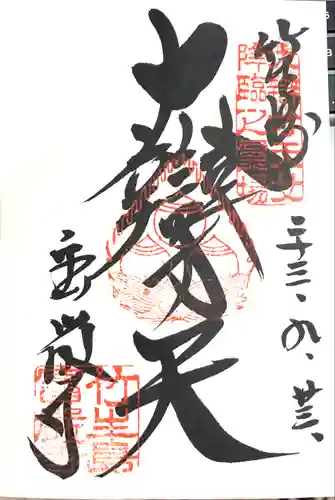 竹生島
二十三、九、廿三、
降臨之霊場
大辯才天
宝嚴寺
竹生島